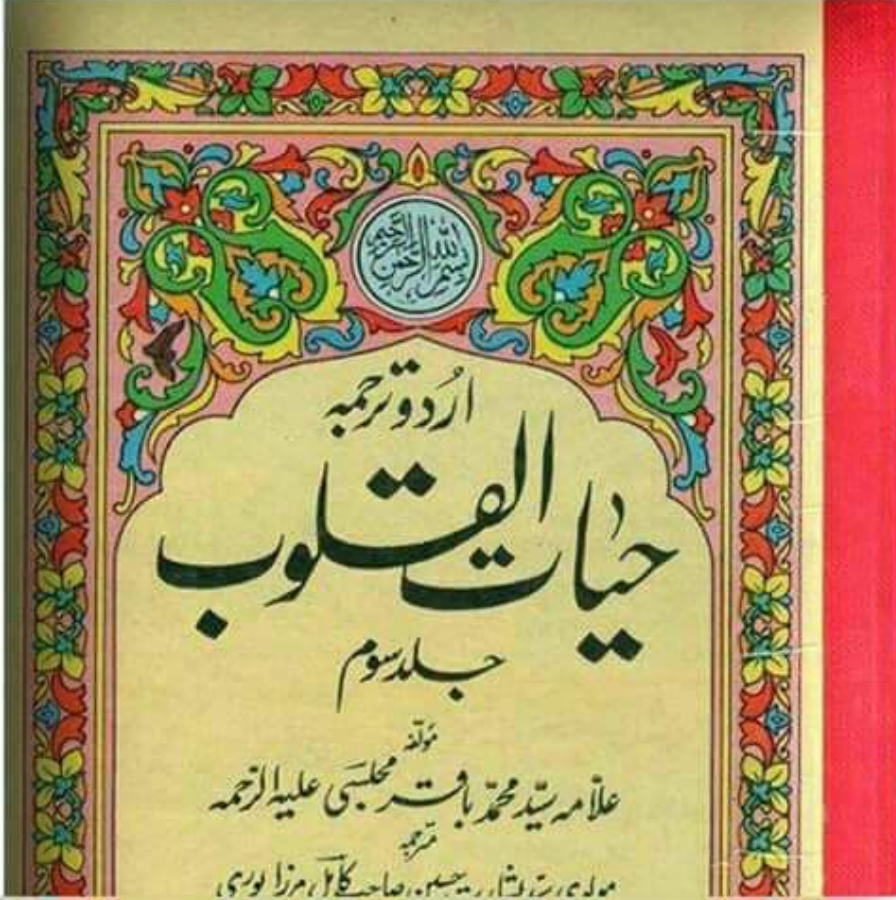 بسم الله الرحمن الرحيم
اُردو ترجمہ
حیات القلوب
جلد سوم
مؤلفہ
علّامہ سیّد محمّد باقر مجلسی علیہ الرحمہ
مترجمہ
مولوی سید بشارت حسین صاحب کامل مرزا پوری